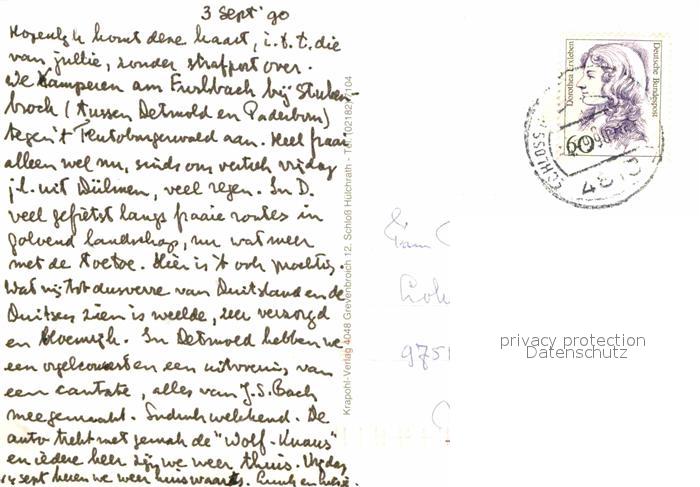 3 Sept '90
Hopenlijk komt deze kaart, i.t.t. die
van jullie, zonder strafport over.
We kamperen am Furlbach bij Stuken-
brock (tussen Detmold en Paderborn)
tegen 't Teutoburgerwald aan. Heel fraai
alleen wel nu, sinds ons vertrek vrijdag
j.l. uit Dülmen, veel regen. In D.
veel gefietst langs fraaie routes in
golvend landschap, nu wat meer
met de toetoe. Hier is 't ook prachtig.
Wat wij tot dusverre van Duitsland en de
Duitsers zien is weelde, zeer verzorgd
en bloemrijk. In Detmold hebben we
een orgelconcert en een uitvoering van
een cantate, alles van J.S. Bach
meegemaakt. Indrukwekkend. De
auto trekt met gemak de "Wolf-Knaus"
en iedere keer zijn we weer thuis. Vrijdag
14 sept keren we weer huiswaarts.
Krapohl-Verlag 4048 Grevenbroich 12, Schloß Hülchrath - Tel. (02182)
Dorothea Erxleben
Deutsche Bundespost
60
SCHLOSS
Fam
975
privacy protection
Datenschutz